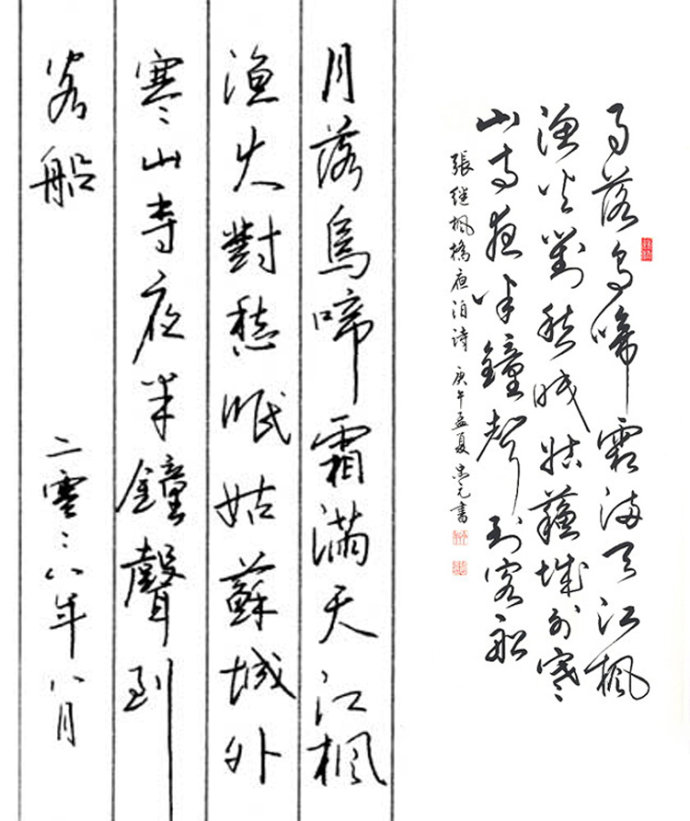 月落烏啼霜滿天江楓
漁火對愁眠姑蘇城外
寒山寺夜半鐘聲到
客船
二零〻八年八月
月落烏啼霜滿天江楓
漁火對愁眠姑蘇城外寒
山寺夜半鐘聲到客船
張继楓橋夜泊诗 庚午孟夏書